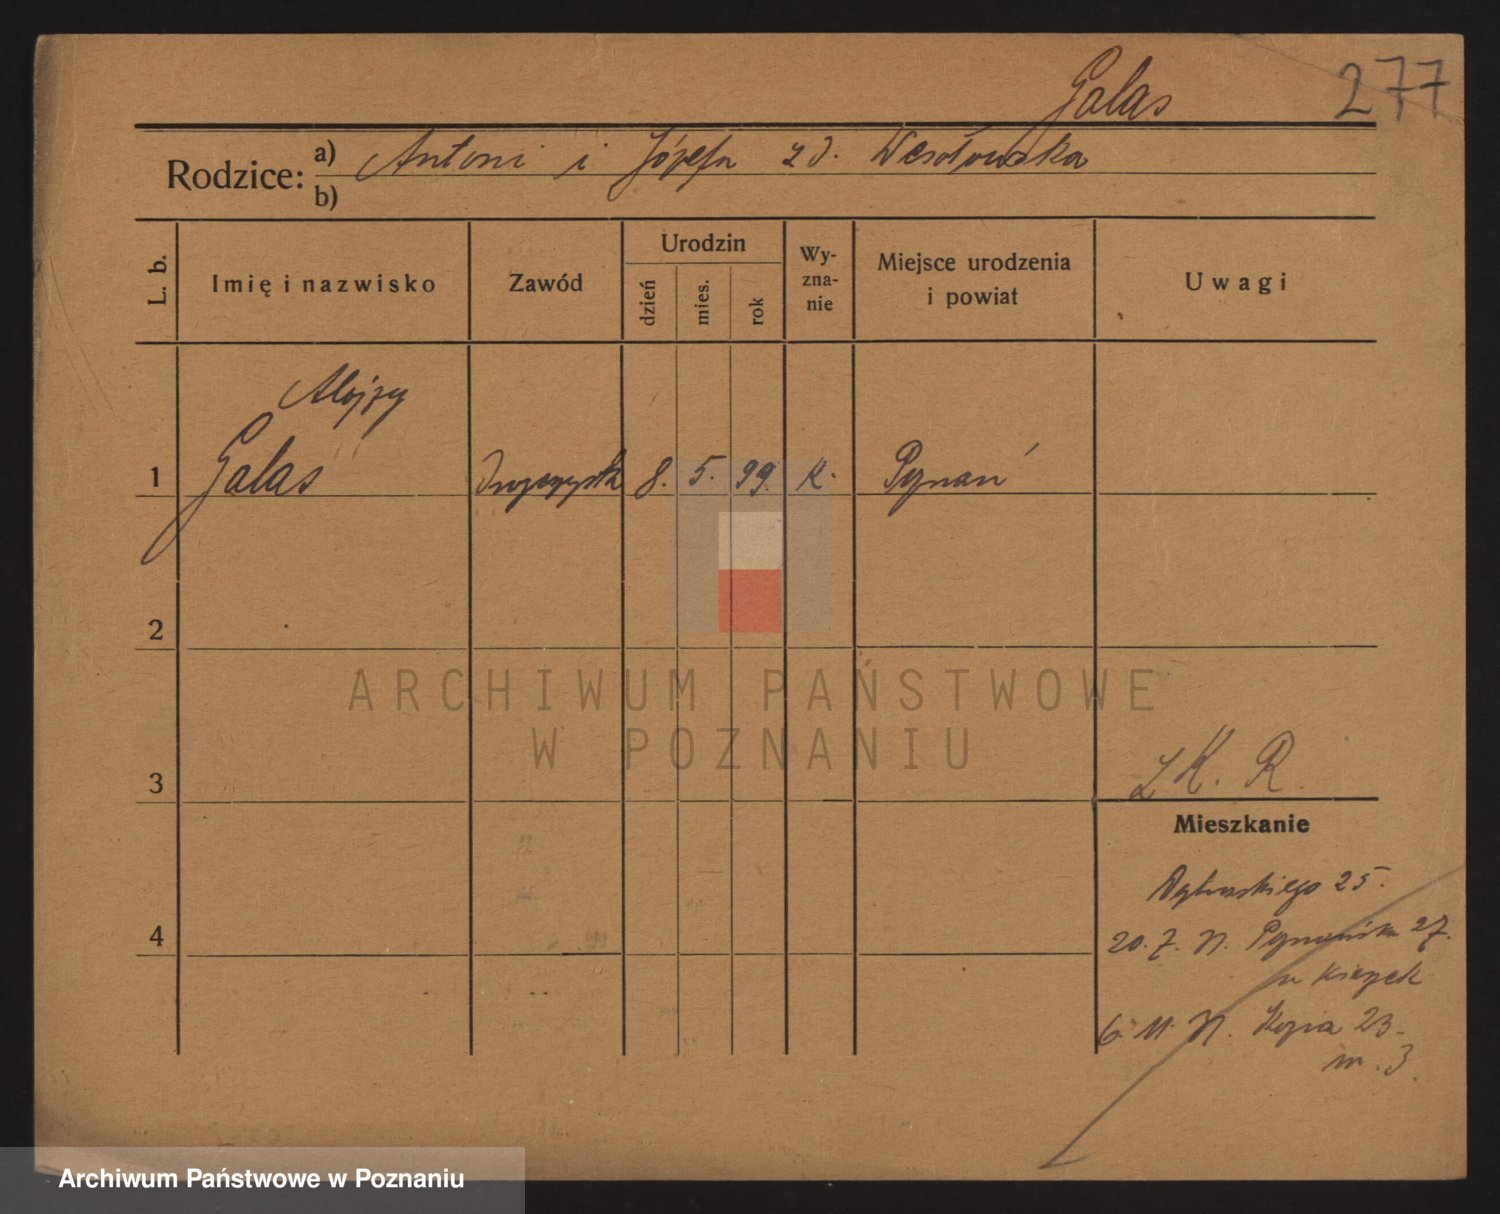 Galas 277
Rodzice: a) Antoni i Józefa z d. Wesołowska
b)
L. b.
Imię i nazwisko
Zawód
Urodzin
dzień
mies.
rok
Wy-
zna-
nie
Miejsce urodzenia
i powiat
Uwagi
Alojzy
1 Galas 8. 5. 99. K. Poznań
2
ARCHIWUM PAŃSTWOWE
W POZNANIU
3 K. R.
Mieszkanie
Dąbrowskiego 25.
4
20. 7. Poznańska 27.
Kierzek
6. 11. Kozia 23.
m. 3.
Archiwum Państwowe w Poznaniu